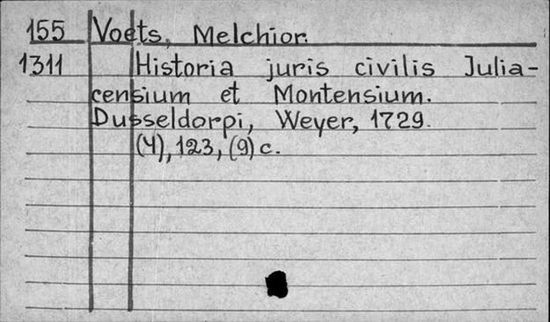 155 Voets, Melchior.
1311 Historia juris civilis Julia-
censium et Montensium.
Dusseldorpi, Weyer, 1729.
(4), 123, (9) c.